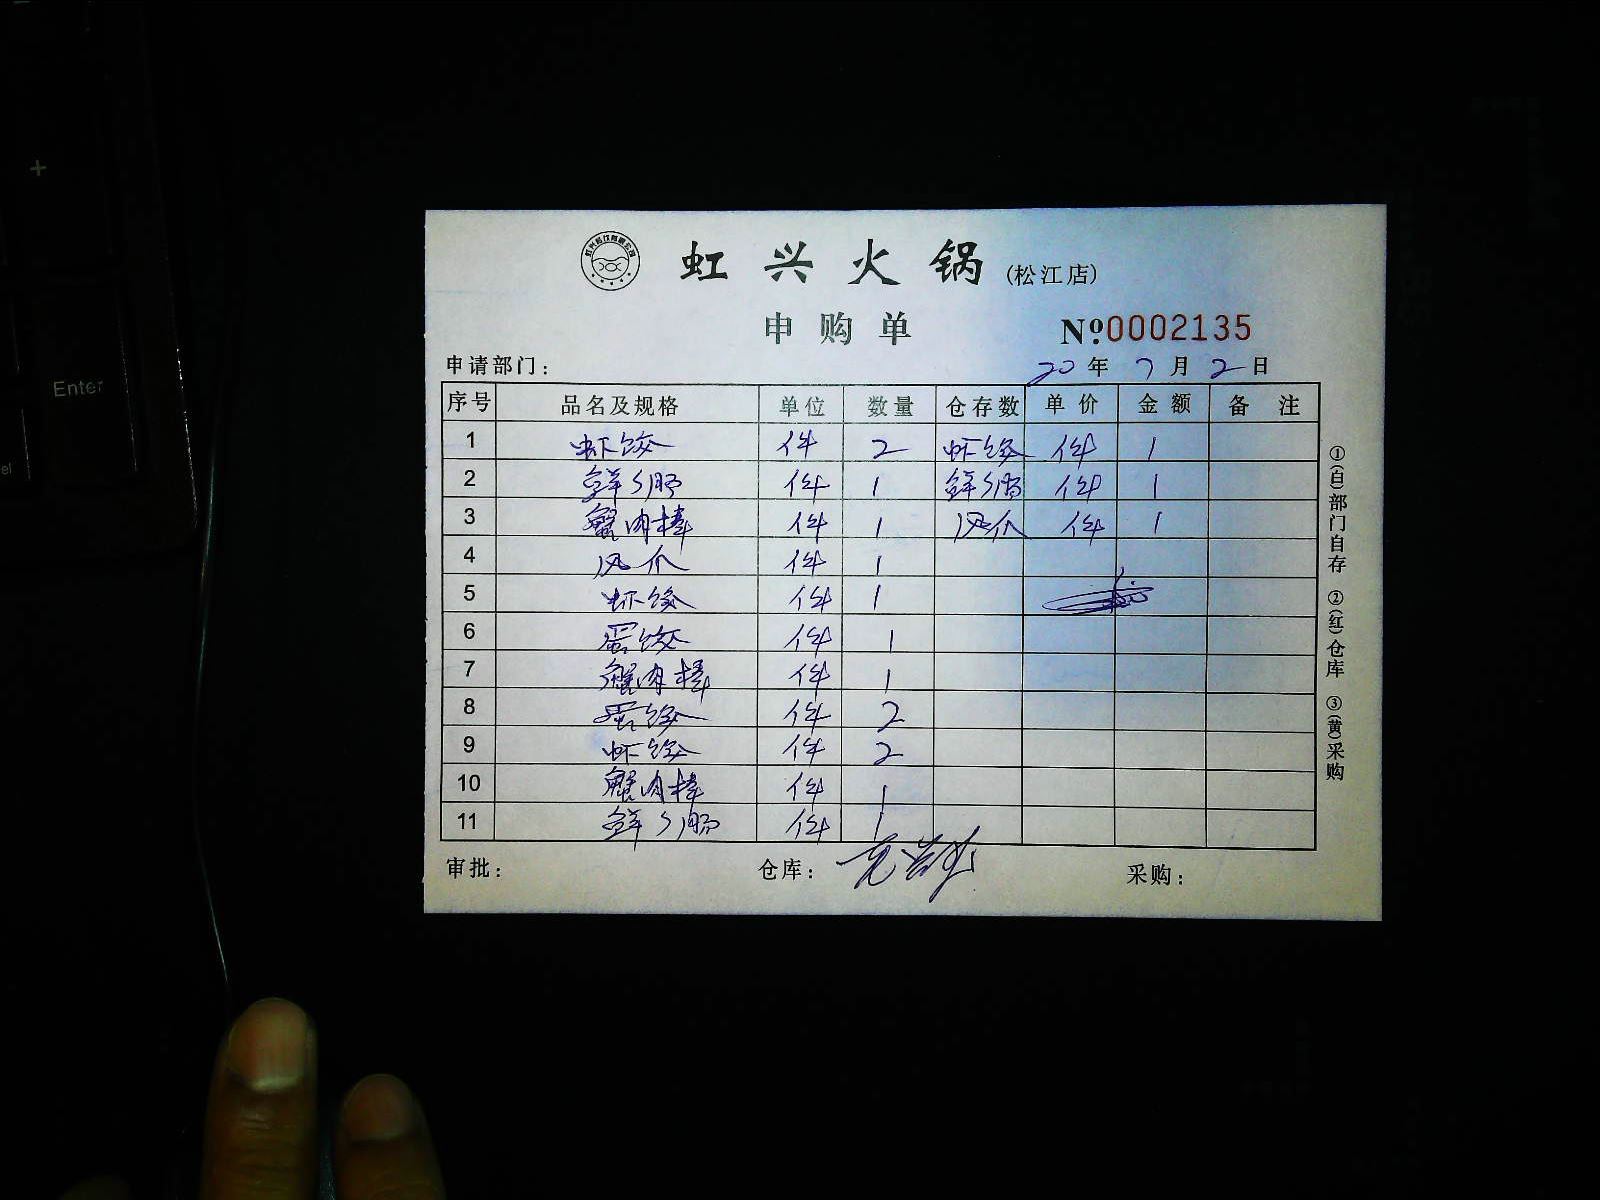 +
Enter
虹兴火锅 (松江店)
申购单 Nº:0002135
申请部门: 20 年 7 月 2 日
序号 品名及规格 单位 数量 仓存数 单价 金额 备注
1 虾饺 件 2 虾饺 件 1
2 鲜乡肠 件 1 鲜乡肠 件 1
3 蟹肉棒 件 1 风爪 件 1
4 风爪 件 1
5 虾饺 件 1
6 蛋饺 件 1
7 蟹肉棒 件 1
8 蛋饺 件 2
9 虾饺 件 2
10 蟹肉棒 件 1
11 鲜乡肠 件 1
审批: 仓库: 采购:
①(白)部门自存 ②(红)仓库 ③(黄)采购